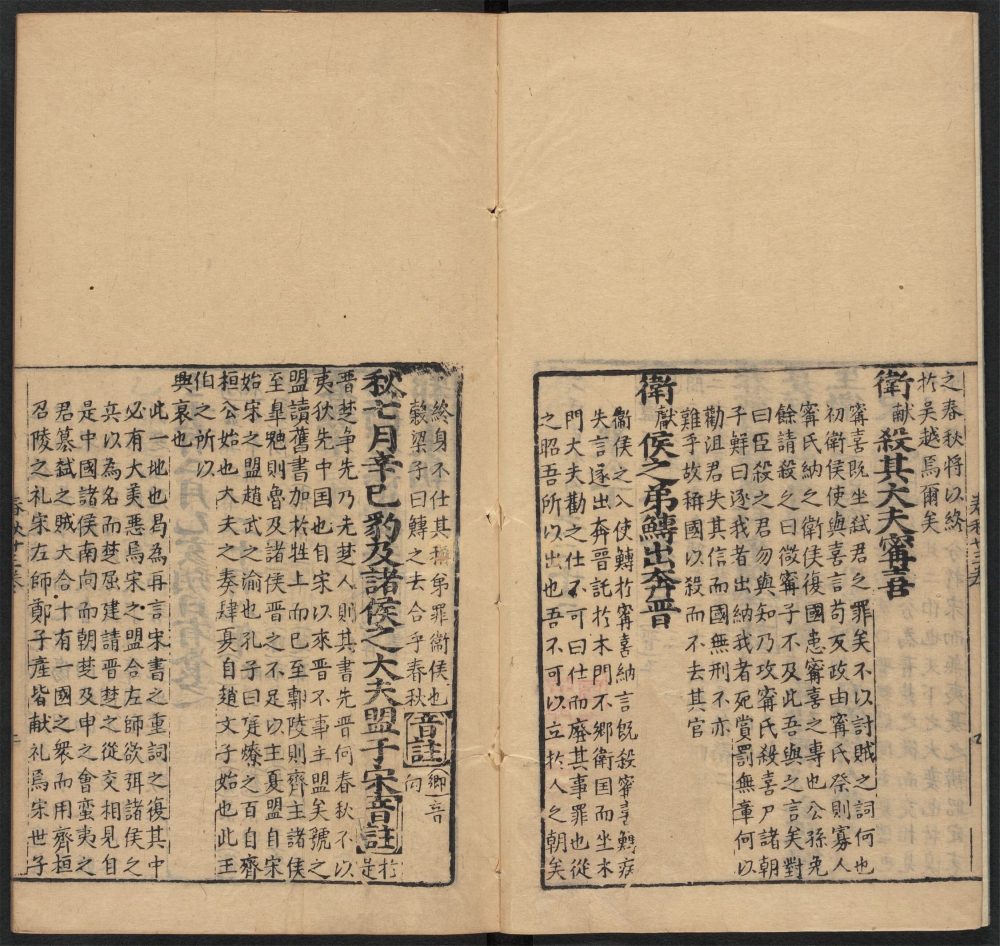 之春秋將以終
於吳越焉爾矣
衛殺其大夫甯喜
獻
甯喜既坐弒君之罪矣不以討賊之詞何也
初衛侯使與喜言苟反政由甯氏祭則寡人
甯氏納之衛侯復國患甯喜之專也公孫免
餘請殺之曰微甯子不及此吾與之言矣對
曰臣殺之君勿與知乃攻甯氏殺喜尸諸朝
子鮮曰逐我者出納我者死賞罰無章何以
勸沮君失其信而國無刑不亦
難乎故稱國以殺而不去其官
衛侯之弟鱄出奔晉
獻
衞侯之入使鱄於甯喜納言既殺甯喜鱄疾
失言遂出奔晉託於木門不鄉衛国而坐木
門大夫勸之仕不可曰仕而廢其事罪也從
之昭吾所以出也吾不可以立於人之朝矣
終身不仕其稱弟罪衞侯也
穀梁子曰鱄之去合乎春秋
音註
鄉音
向
秋七月辛巳豹及諸侯之大夫盟于宋音註
晉楚争先乃先楚人則其書先晉何春秋不以
夷狄先中国也自宋以來晉不事主盟矣虢之
盟讀舊書加於牲上而已至鄟陵則齊主諸侯
至臯鼬則魯及諸侯晉之不足以主夏盟自宋
始宋之盟趙武之渝也孔子曰庭燎之百自齊
桓公始也大夫之奏肆夏自趙文子始也此王
伯之所以
興衰也
此一地也曷為再言宋書之重詞之復其中
必有大美惡焉宋之盟合左師欲弭諸侯之
兵以為名而楚屈建請晉楚之從交相見自
是中國諸侯南向而朝楚及申之會蛮夷之
君篡弒之賊大合十有一國之衆而用齊桓
召陵之礼宋左師鄭子產皆献礼焉宋世子